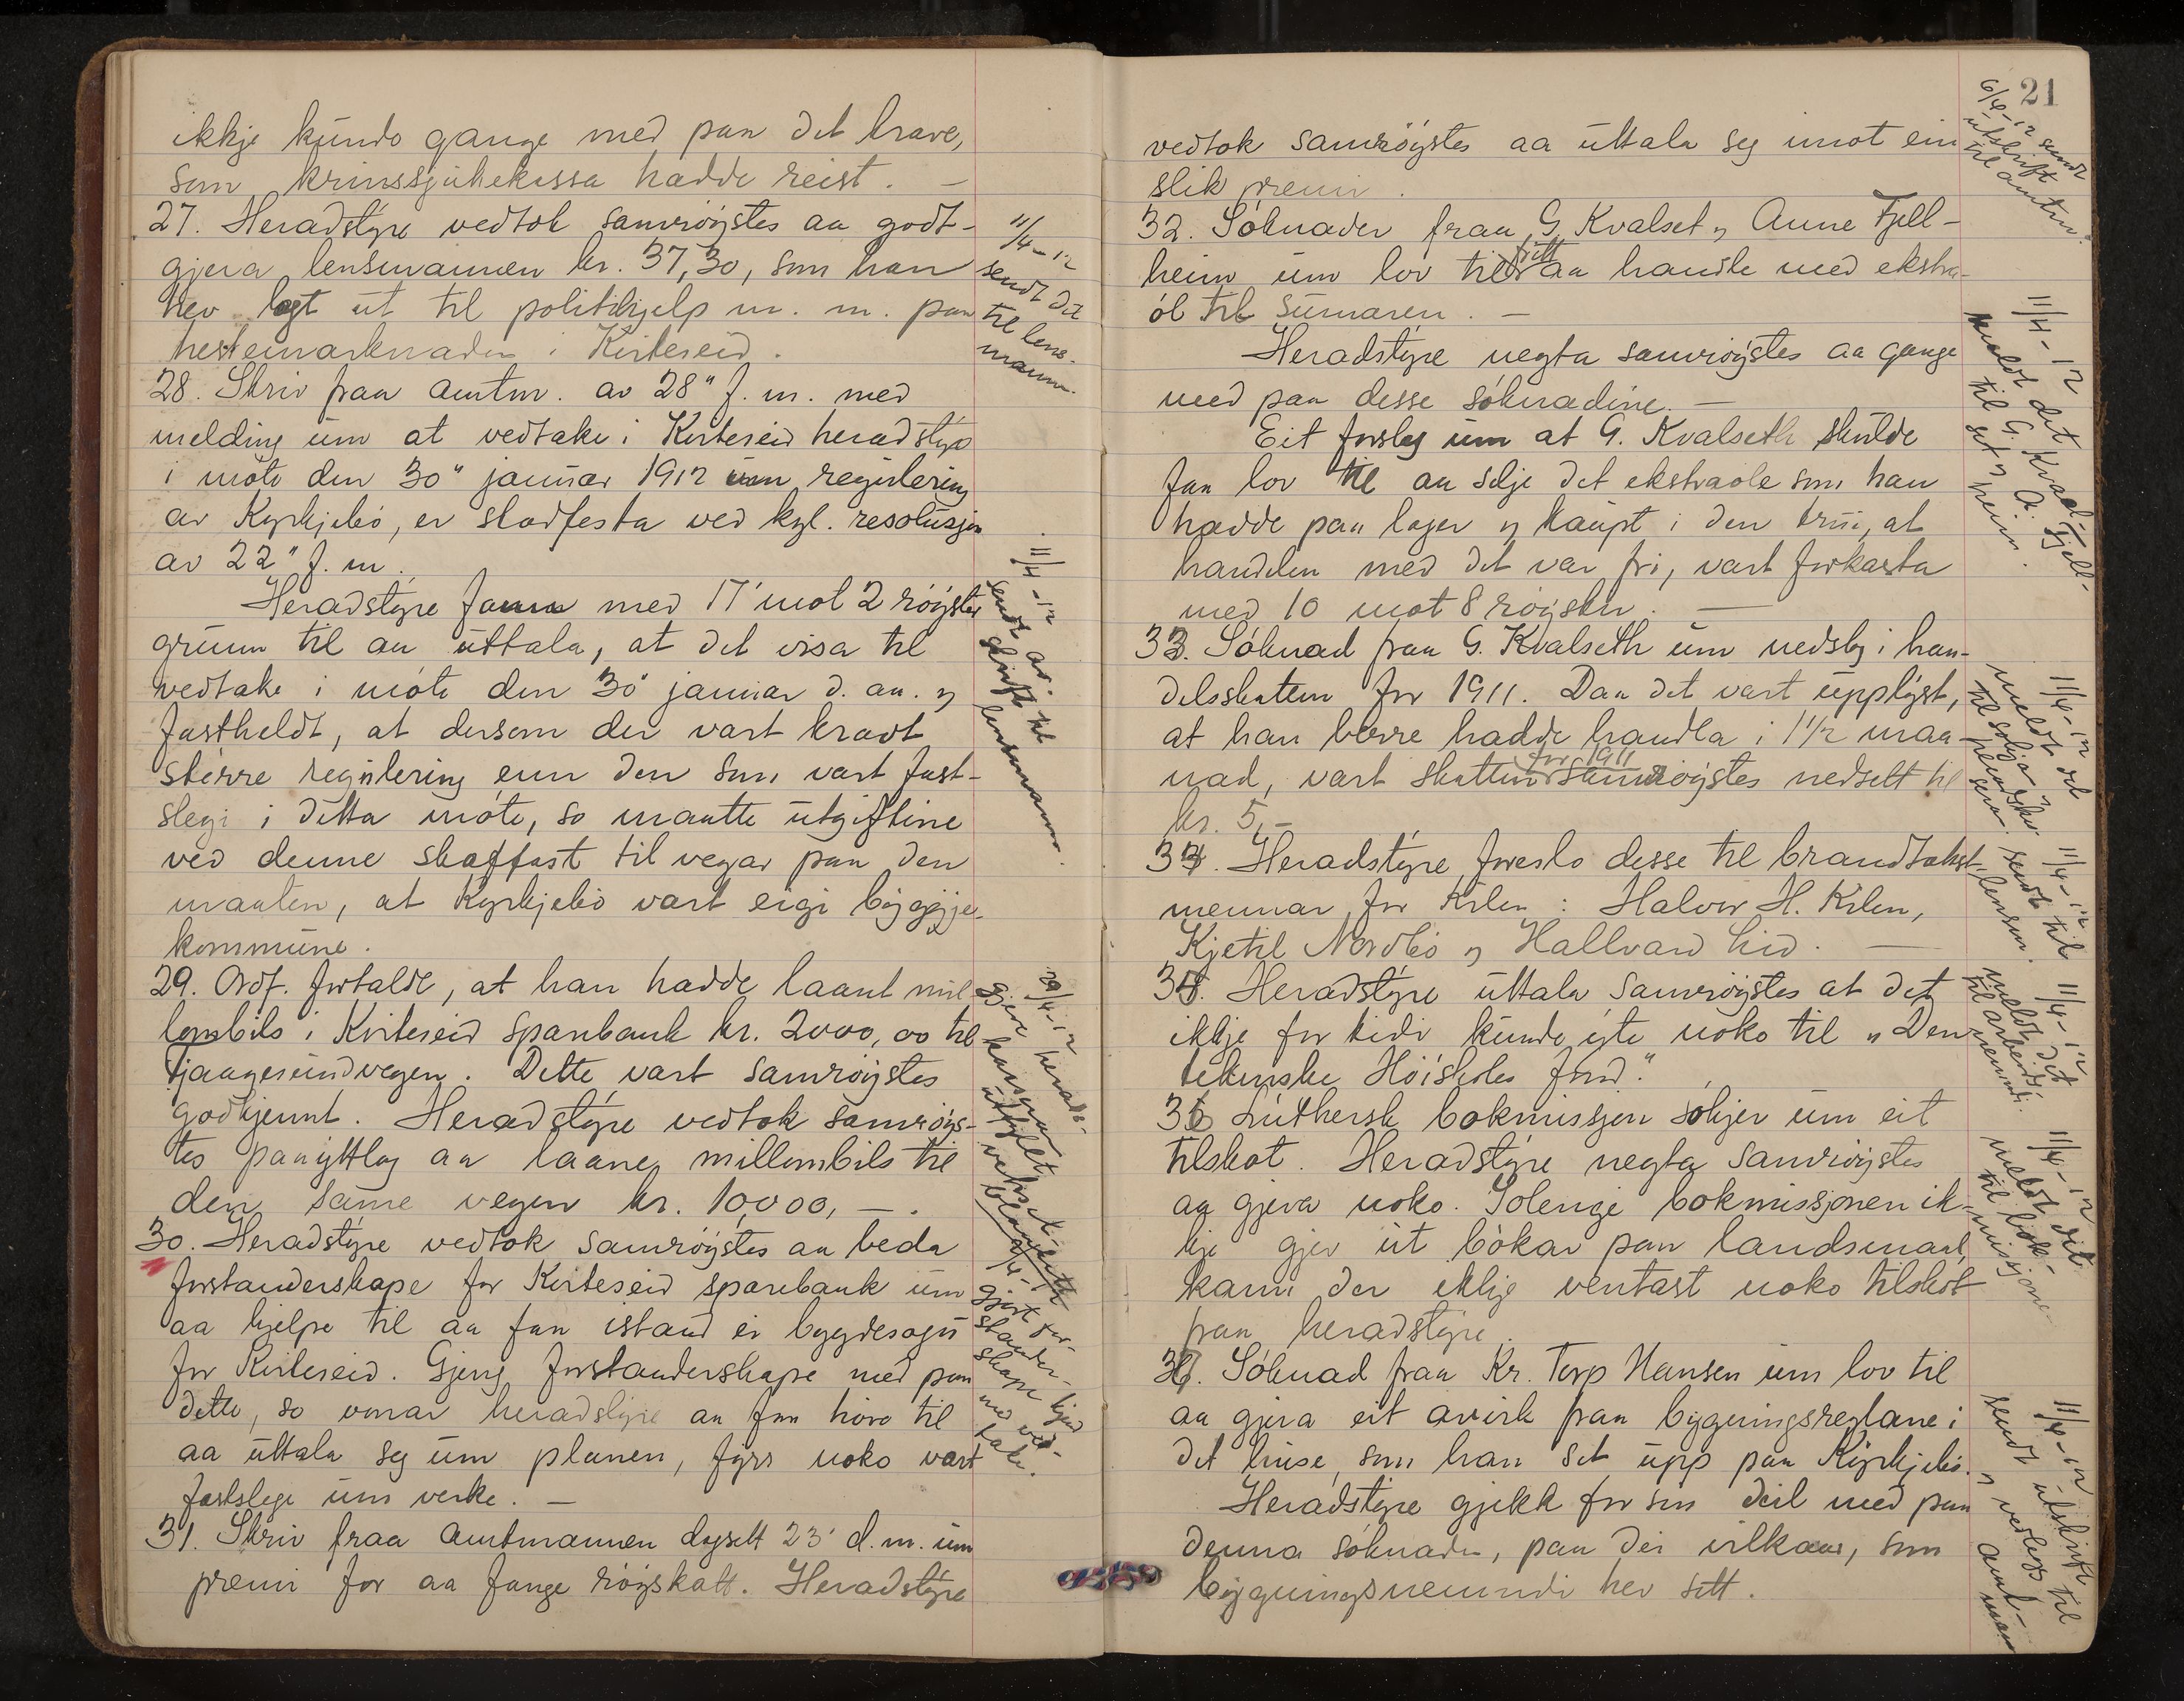 ikkje kundo gange med paa det krave,
som krinssjukekassa hadde reist. —
27. Heradstyre vedtok samröystes aa godt-
gjera lensmannen kr. 37,30, som han
hev lagt ut til politihjelp m. m. paa
hestemarknaden i Kviteseid.
28. Skriv fraa amtm. av 28" f. m. med
melding um at vedtake i Kviteseid heradstyre
i möte den 30" januar 1912 um regulering
av Kyrkjebö, er stadfesta ved kgl. resolusjon
av 22" f. m.
Heradstyre fann med 17 mot 2 röyster
grunn til aa uttala, at det visa til
vedtake i möte den 30' januar d. aa. og
fastheldt, at dersom der vart kravt
större regulering enn den som vart fast-
slegi i detta möte, so maatte utgiftine
ved denne skaffast til vegar paa den
maaten, at Kyrkjebö vart eigi byggje-
kommune.
29. Ordf. fortalde, at han hadde laant mil-
lombils i Kviteseid sparibank kr. 2000,00 til
Fjaagesundvegen. Dette vart samröystes
godkjennt. Heradstyre vedtok samröys-
tes paanyttlag aa laane millombils til
den same vegen kr. 10,000, —.
30. Heradstyre vedtok samröystes aa beda
forstanderskape for Kviteseid sparebank um
aa hjelpe til aa faa istand ei bygdesogu
for Kviteseid. Gjeng forstanderskape med paa
dette, so vonar heradstyre aa faa höve til
aa uttala seg um planen, fyrr noko vart
fastslege um verke. —
31. Skriv fraa amtmannen dagsett 23' d. m. um
premi for aa fange röyskatt. Heradstyre
11/4-12
sendt dit
til lens-
mann.
11/4-12
sendt av-
skrift til
lensmann.
29/4-12
Gjeve herads-
kasseraren
utfyllt
veksel-
blankett
gjort for-
stander-
skape kjend
med ved-
take.
21
vedtok samröystes aa uttala seg imot ein
slik premi.
32. Söknader fraa G. Kvalset og Anne Fjell-
heim um lov til rett aa handle med ekstra-
öl til sumaren. —
Heradstyre negta samröystes aa gange
med paa desse söknadine. —
Eit forslag um at G. Kvalseth skulde
faa lov til aa selje det ekstraöle som han
hadde paa lager og kaupt i den trui, at
handelen med det var fri, vart forkasta
med 10 mot 8 röyster. —
33. Söknad fraa G. Kvalseth um nedslag i han-
delsskatten for 1911. Daa det vart upplyst,
at han berre hadde handla i 1 1/2 maa-
nad, vart skatten for 1911 samröystes nedsett til
kr. 5,-
34. Heradstyre foreslo desse til brandtakst-
mennar for Kilen: Halvor H. Kilen,
Kjetil Nordbö og Hallvard Lid. —
35. Heradstyre uttala samröystes at det
ikkje for tidi kunde yte noko til „Den
tekniske Höiskoles fond."
36 Luthersk bokmissjon sökjer um eit
tilskot. Heradstyre negta samröystes
aa gjeva noko. Solenge bokmissjonen ik-
kje gjev ut bökar paa landsmaal,
kann der ikkje ventast noko tilskot
fraa heradstyre.
37. Söknad fraa Kr. Torp Hansen um lov til
aa gjera eit avvik fraa bygningsreglane i
det huse, som han set upp paa Kyrkjebö.
Heradstyre gjekk for sin deil med paa
denna söknaden, paa dei vilkaar, som
bygningsnemndi hev sett.
6/4-12 sendt
utskrift
til amtm.
11/4-12
meldt det
til G. Kval-
set og A. Fjell-
heim.
11/4-12
meldt det
til sökjaren og
heradskas-
seraren.
11/4-12
sendt til
lensm.
11/4-12
meldt det
til arbeids-
nemndi.
11/4-12
meldt dit
til bok-
missjonen
11/4-12
sendt utskrift
og vedlegg til
amt-
mann